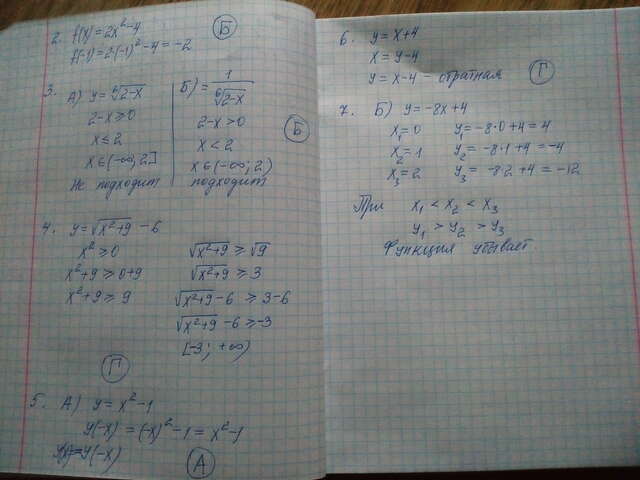 2. f(x) = 2x² - 4
f(-1) = 2·(-1)² - 4 = -2
Б
3. А) y = ⁶√(2-x)
2-x ≥ 0
x ≤ 2
x ∈ (-∞; 2]
Не подходит
Б) = 1/⁶√(2-x)
2-x > 0
x < 2
x ∈ (-∞; 2)
подходит
Б
4. y = √(x²+9) - 6
x² ≥ 0
x²+9 ≥ 0+9
x²+9 ≥ 9
√(x²+9) ≥ √9
√(x²+9) ≥ 3
√(x²+9) - 6 ≥ 3-6
√(x²+9) - 6 ≥ -3
[-3; +∞)
Г
5. А) y = x² - 1
y(-x) = (-x)² - 1 = x² - 1
y(x) = y(-x)
А
6. y = x+4
x = y-4
y = x-4 - обратная
Г
7. Б) y = -8x+4
x₁ = 0 y₁ = -8·0+4 = 4
x₂ = 1 y₂ = -8·1+4 = -4
x₃ = 2 y₃ = -8·2+4 = -12
При x₁ < x₂ < x₃
y₁ > y₂ > y₃
Функция убывает